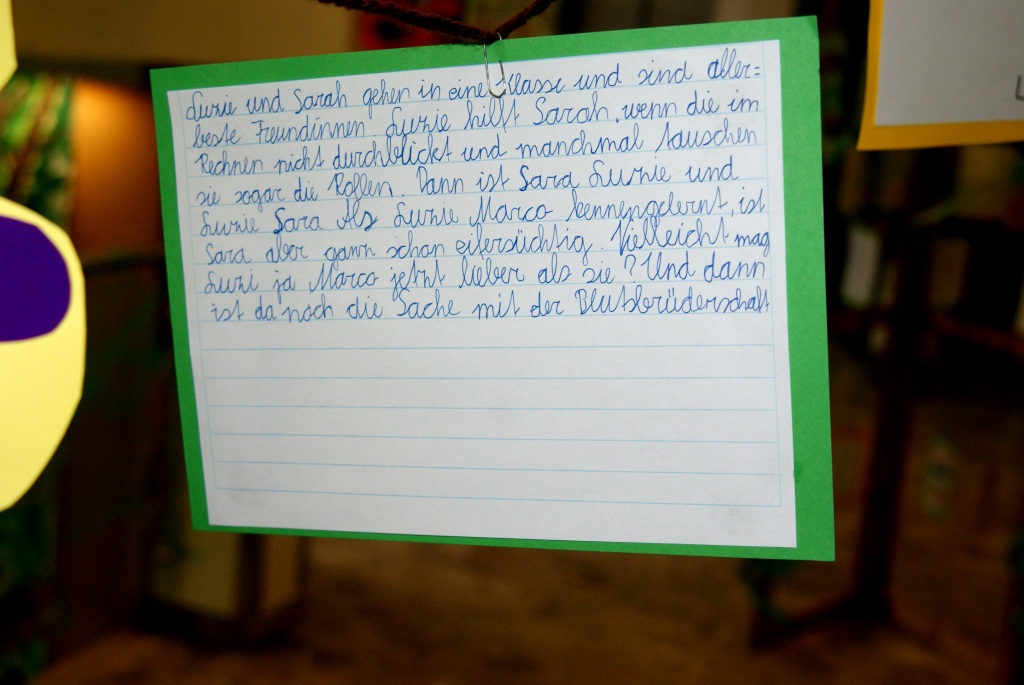 Luzie und Sarah gehen in eine Klasse und sind aller=
beste Freundinnen. Luzie hilft Sarah, wenn die im
Rechnen nicht durchblickt und manchmal tauschen
sie sogar die Rollen. Dann ist Sara Luzie und
Luzie Sara. Als Luzie Marco kennengelernt, ist
Sara aber ganz schön eifersüchtig. Vielleicht mag
Luzi ja Marco jetzt lieber als sie? Und dann
ist da noch die Sache mit der Blutsbrüderschaft